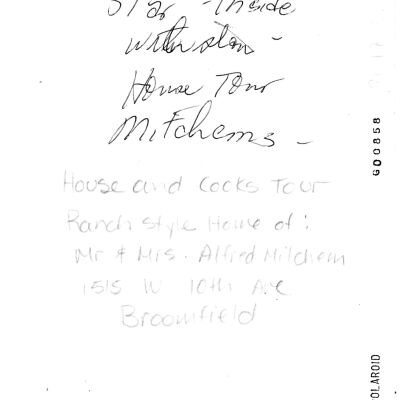 Star - Inside
with slon -
House Tour
Mitchems -
House and Cocks Tour
Ranch style Home of :
Mr & Mrs. Alfred Mitchem
1515 W 10th Ave
Broomfield
G00858
POLAROID